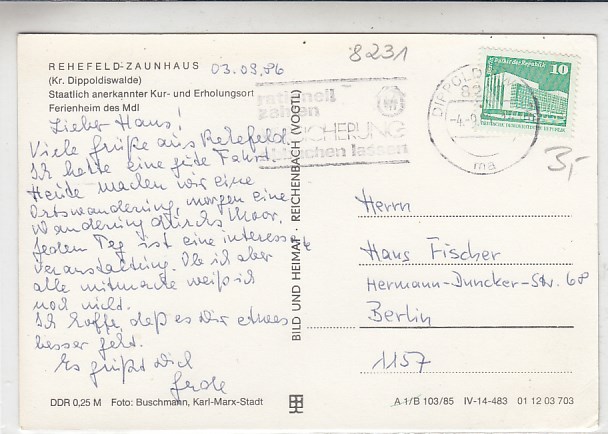 8231
REHEFELD-ZAUNHAUS
03.09.86
(Kr. Dippoldiswalde)
Staatlich anerkannter Kur- und Erholungsort
Ferienheim des MdI
Lieber Hans!
Viele Grüße aus Rehefeld.
Ich hatte eine gute Fahrt.
Heute machen wir eine
Ortswanderung, morgen eine
Wanderung durchs Moor.
Jeden Tag ist eine interessante
Veranstaltung. Ob ich aber
alle mitmache weiß ich
noch nicht.
Ich hoffe, daß es Dir etwas
besser geht.
Es grüßt Dich
rationell
zahlen
buchen lassen
BILD UND HEIMAT · REICHENBACH (VOGTL)
10
3,-
ma
Herrn
Hans Fischer
Hermann-Duncker-Str. 68
Berlin
1157
DDR 0,25 M Foto: Buschmann, Karl-Marx-Stadt
A 1/B 103/85 IV-14-483 01 12 03 703